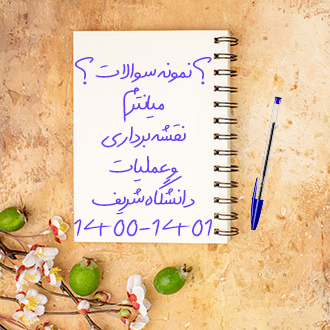 ؟ نمونه سوالات ؟
میانترم
نقشه برداری
وعملیات
دانشگاه شریف
1400-1401